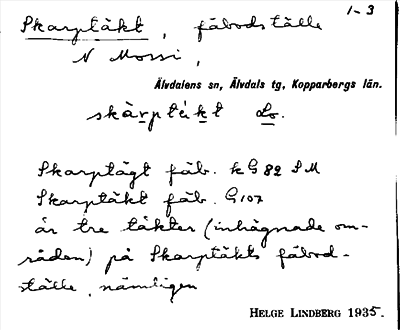 1-3
Skarptäkt, fäbodställe
N Mossi,
Älvdalens sn, Älvdals tg, Kopparbergs län.
skàrptèkt Lo.
Skarptägt fäb. k G 82 S M
Skarptäkt fäb. G 107
är tre täkter (inhägnade om-
råden) på Skarptäkts fäbod-
ställe, nämligen
HELGE LINDBERG 1935.